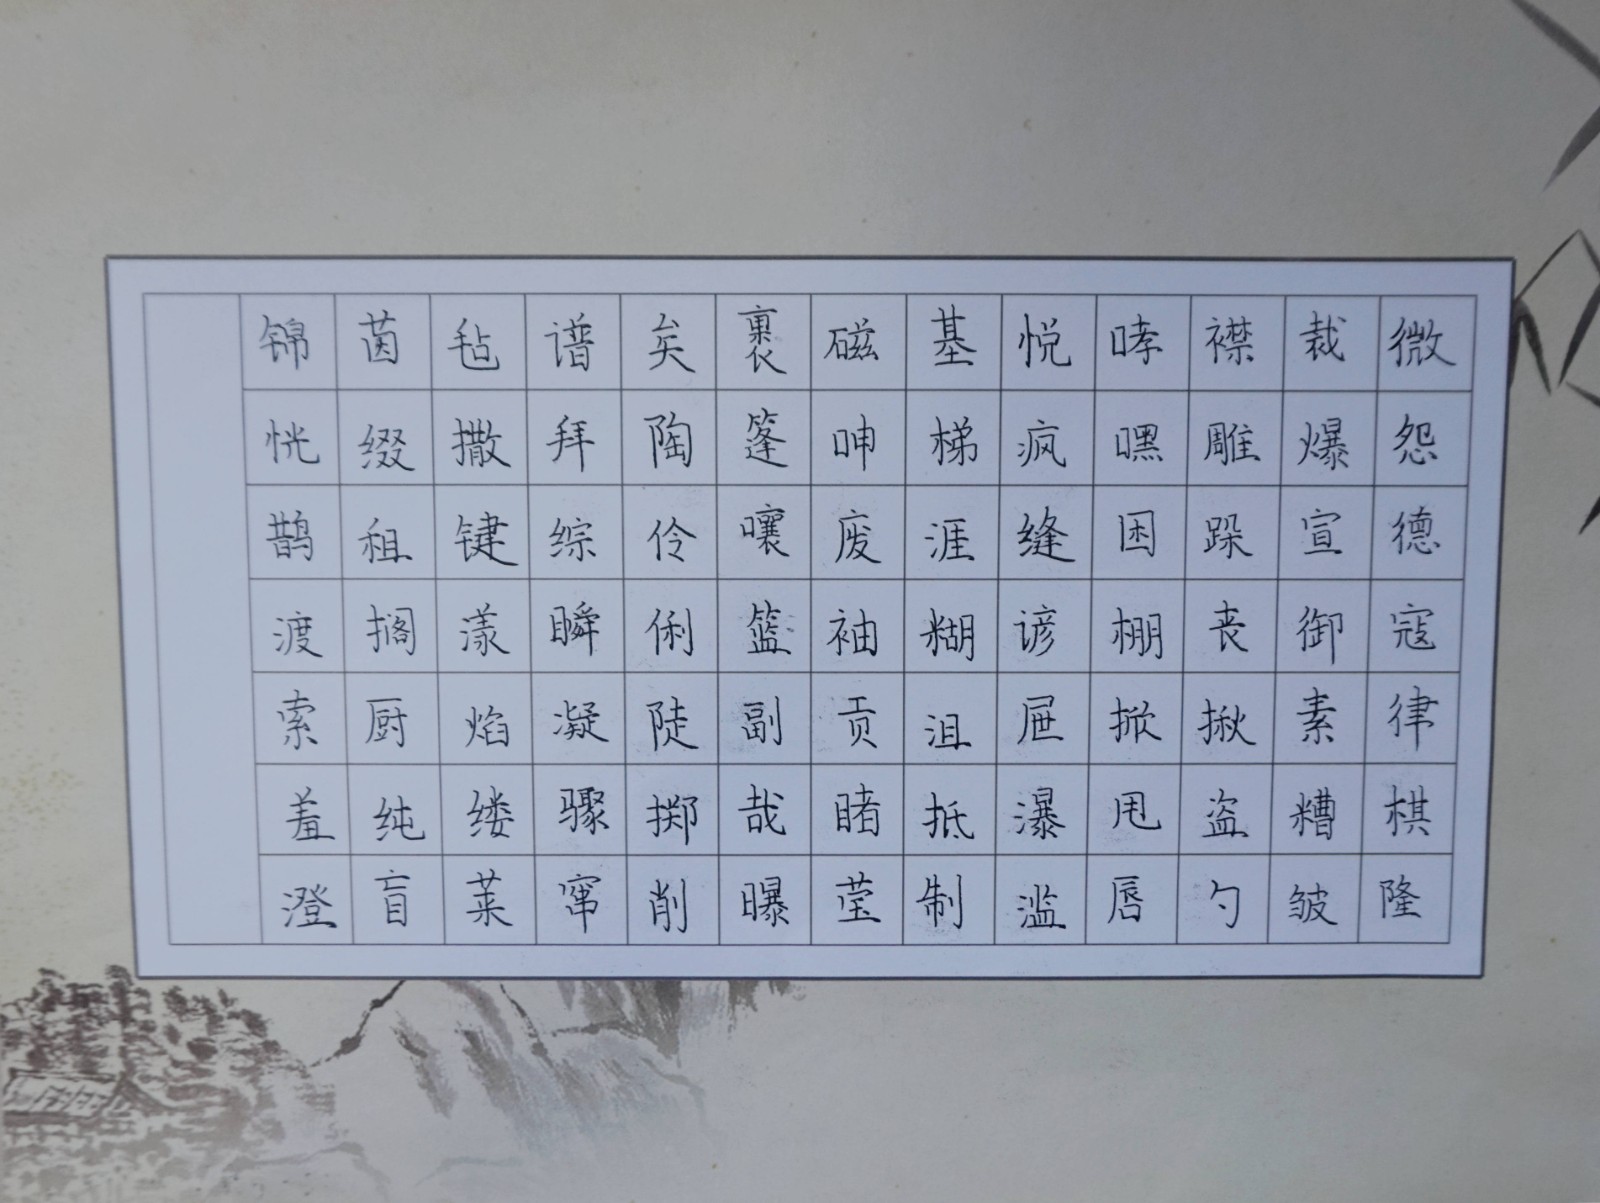 微怨德寇律棋隆
裁爆宣御素糟皱
襟雕跺丧揪盗勺
哮嘿困棚掀甩唇
悦疯缝谚屉瀑滥
基梯涯糊沮抵制
磁呻废袖贡睹莹
裹篷嚷篮副哉曝
矣陶伶俐陡掷削
谱拜综瞬凝骤窜
毡撒键漾焰缕莱
茵缀租搁厨纯盲
锦恍鹊渡索羞澄